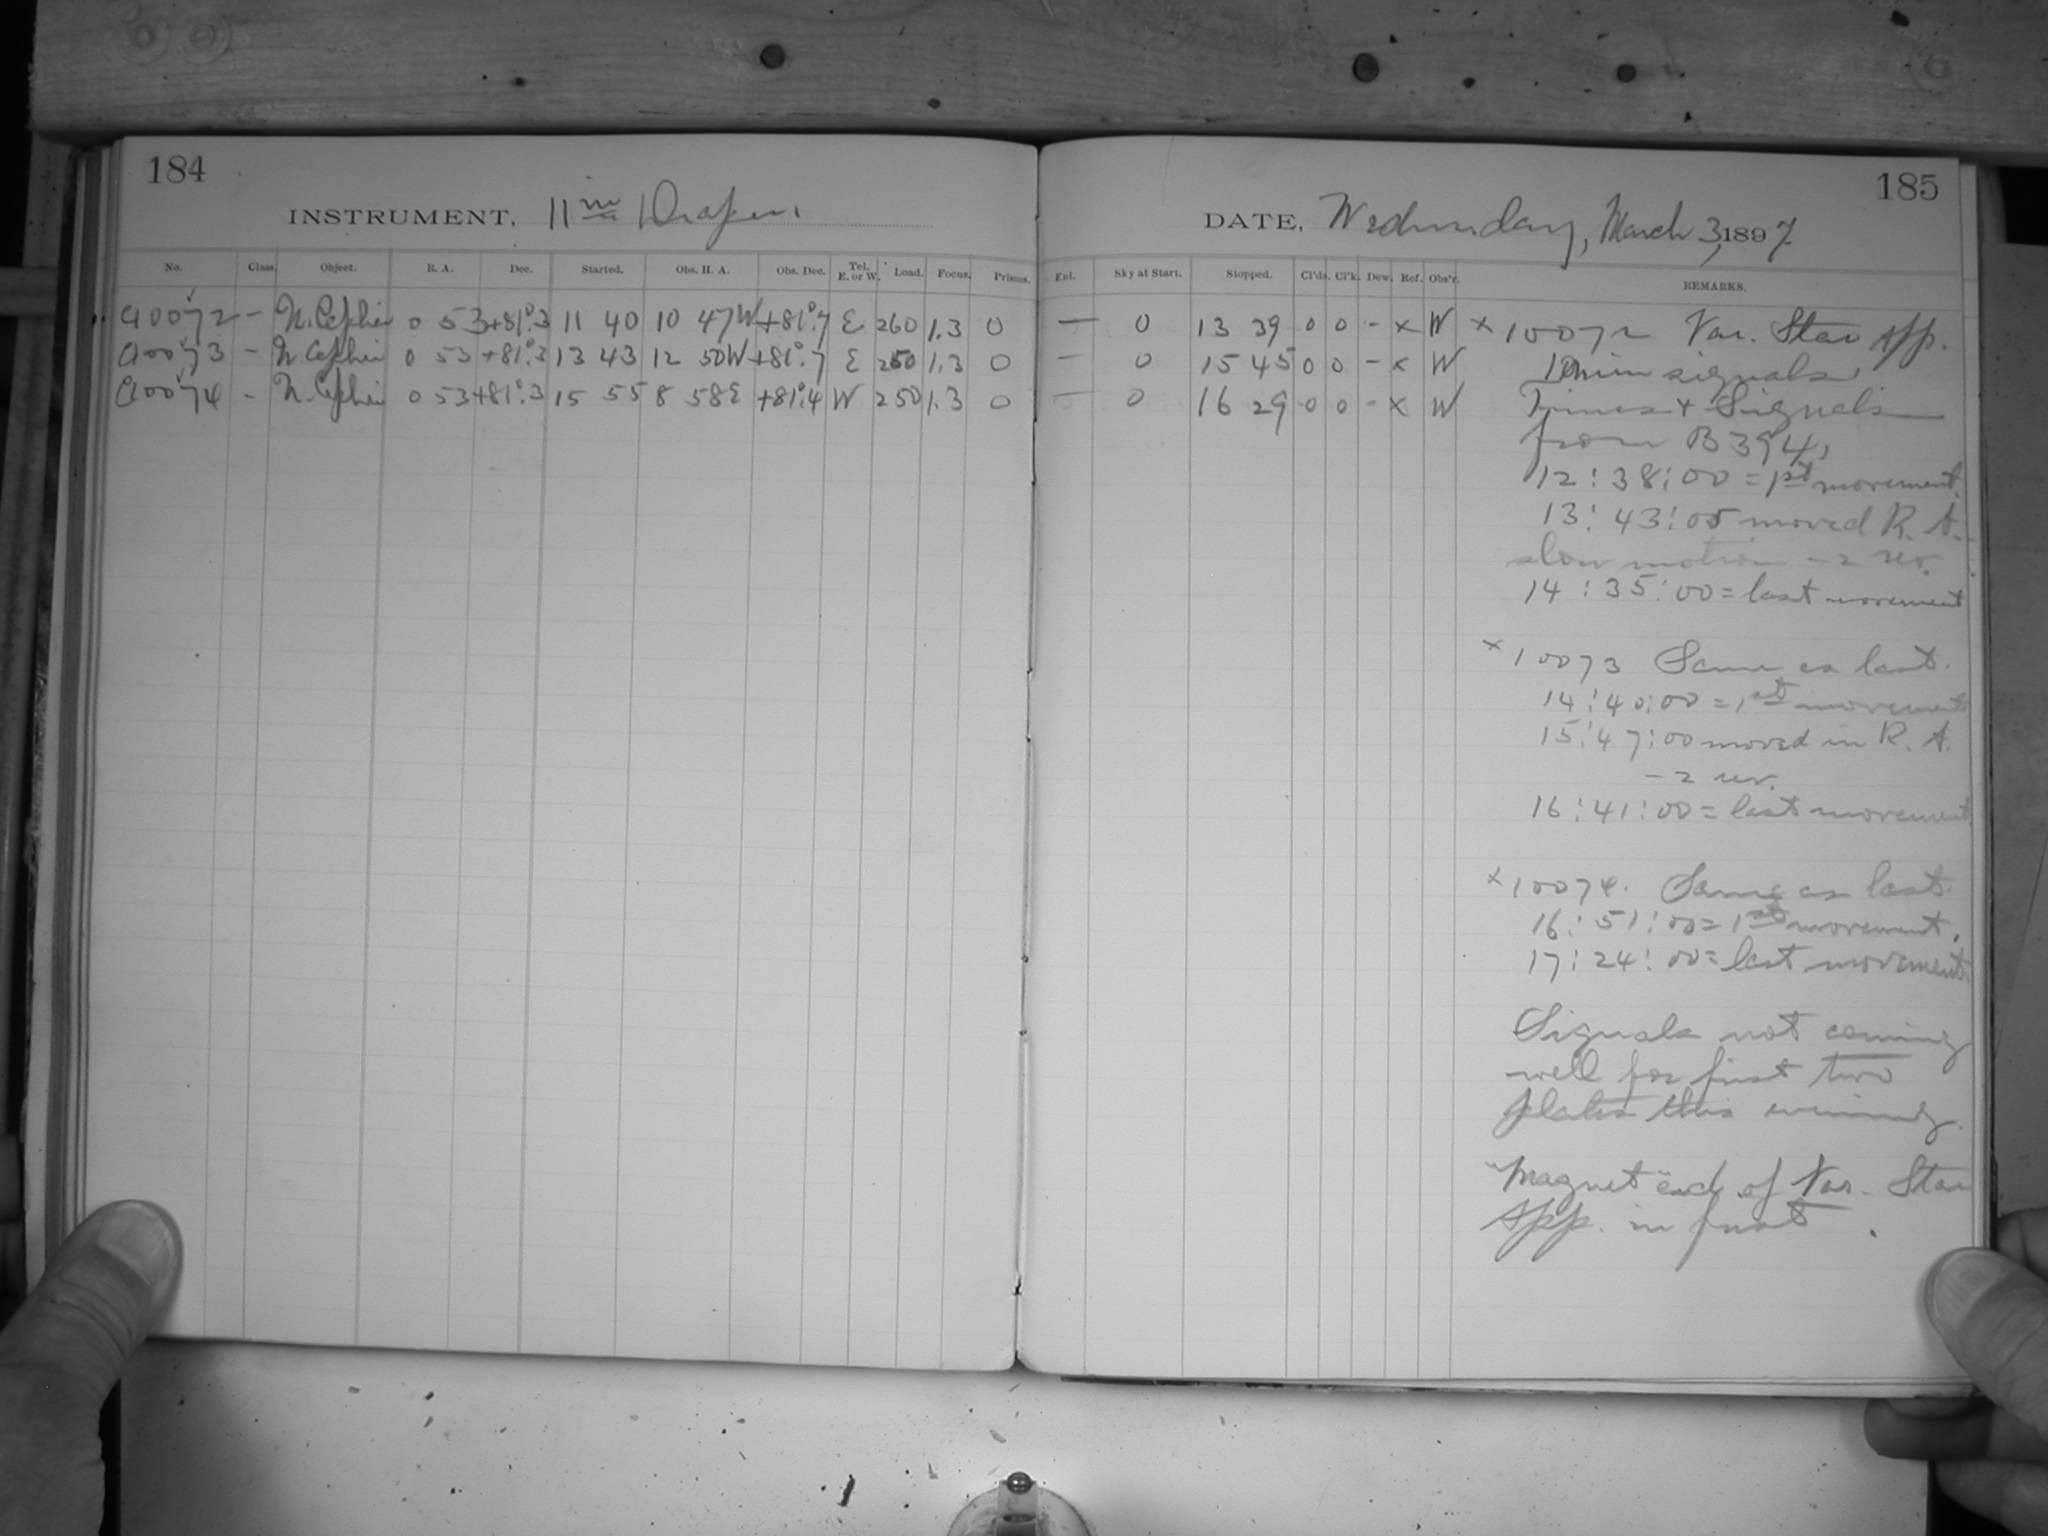 184
INSTRUMENT, 11 in Draper.
No. Class. Object. R. A. Dec. Started. Obs. H. A. Obs. Dec. Tel. E. or W. Load. Focus. Prisms.
a10072 - U. Cephei 0 53 +81°.3 11 40 10 47W +81°.7 E 260 1.3 0
a10073 - U Cephei 0 53 +81°.3 13 43 12 50W +81°.7 E 250 1.3 0
a10074 - U. Cephei 0 53 +81°.3 15 55 8 58E +81°.4 W 250 1.3 0
185
DATE, Wednesday, March 3, 1897
Enl. Sky at Start. Stopped. Cl'ds. Cl'k. Dew. Ref. Obs'r. REMARKS.
— 0 13 39 0 0 - x W
— 0 15 45 0 0 - x W
— 0 16 29 0 0 - x W
x 10072 Var. Star App.
10 min signals.
Times + Signals
from B 394,
12:38:00 = 1st movement.
13:43:05 moved R. A.
slow motion -2 rev.
14:35:00 = last movement
x 10073 Same as last.
14:40:00 = 1st movement
15:47:00 moved in R. A.
-2 rev.
16:41:00 = last movement
x 10074. Same as last.
16:51:00 = 1st movement.
17:24:00 = last movement.
Signals not coming
well for first two
plates this evening.
"Magnet" end of Var. Star
App. in first.